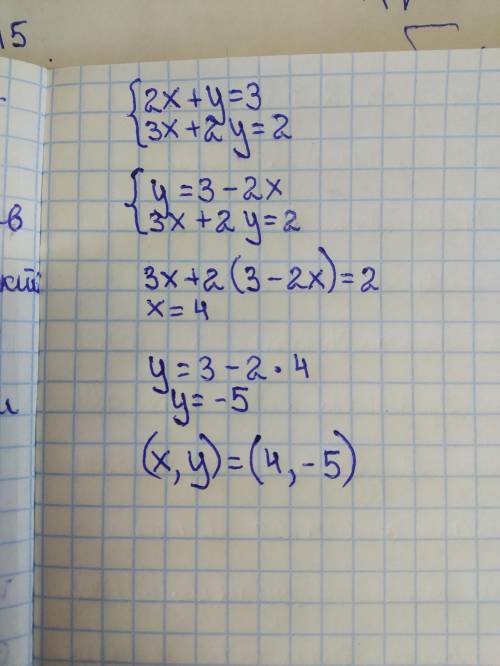 15
{2x+y=3
{3x+2y=2
{y=3-2x
{3x+2y=2
-в
3x+2(3-2x)=2
x=4
y=3-2·4
y=-5
(x,y)=(4,-5)